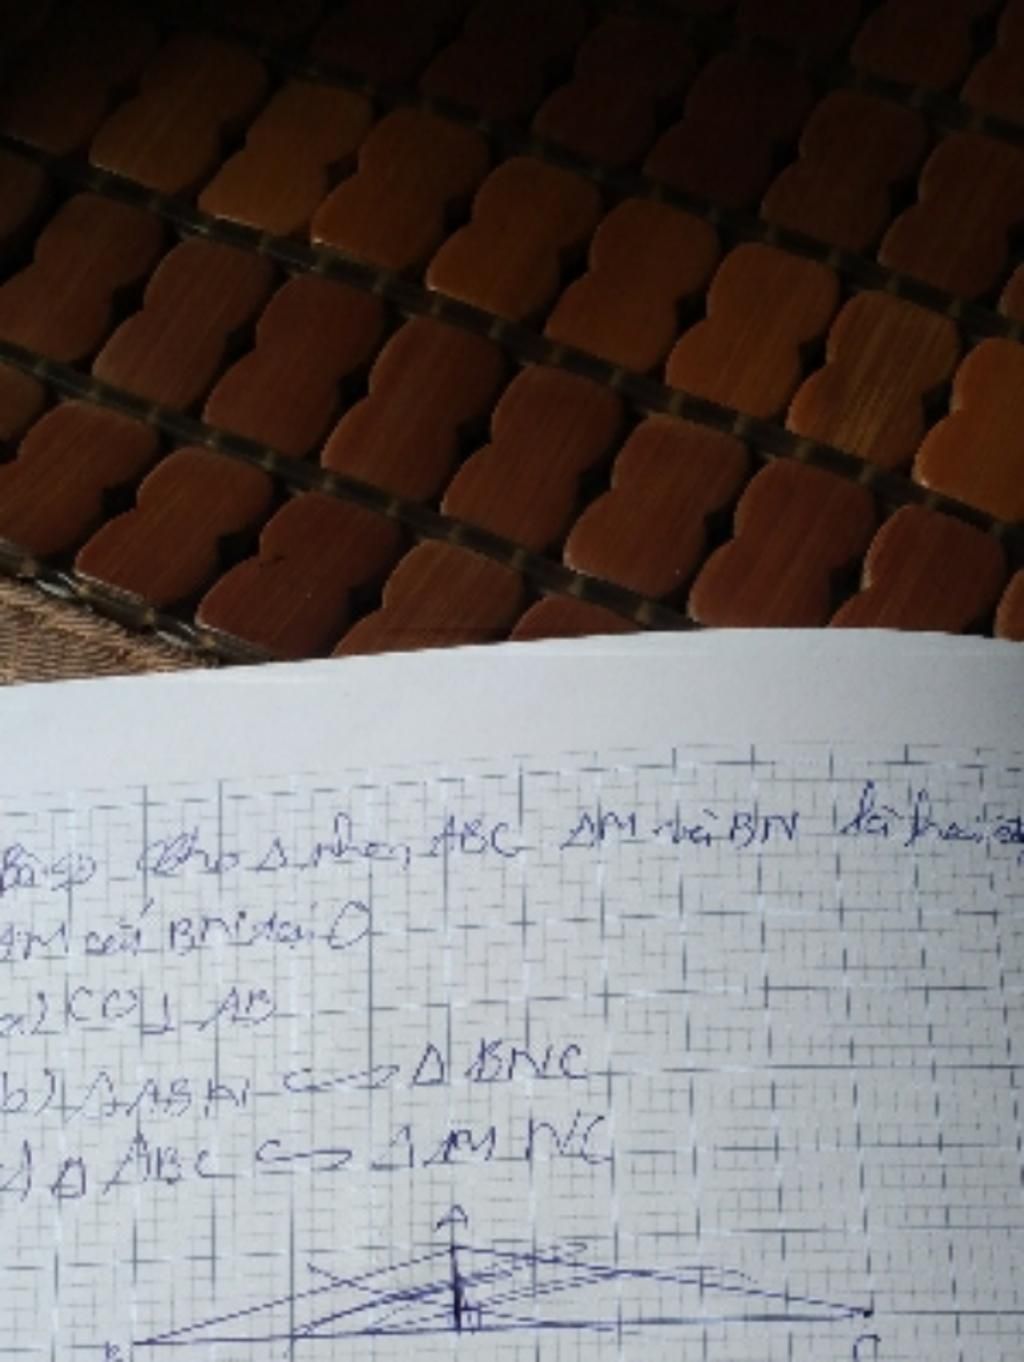 Cho Δ nhọn ABC AM và BN là hai
AM cắt BN tại O
a) CO ⊥ AB
b) Δ ∽ Δ BNC
c) Δ ABC ∽ Δ MNC
A
B C